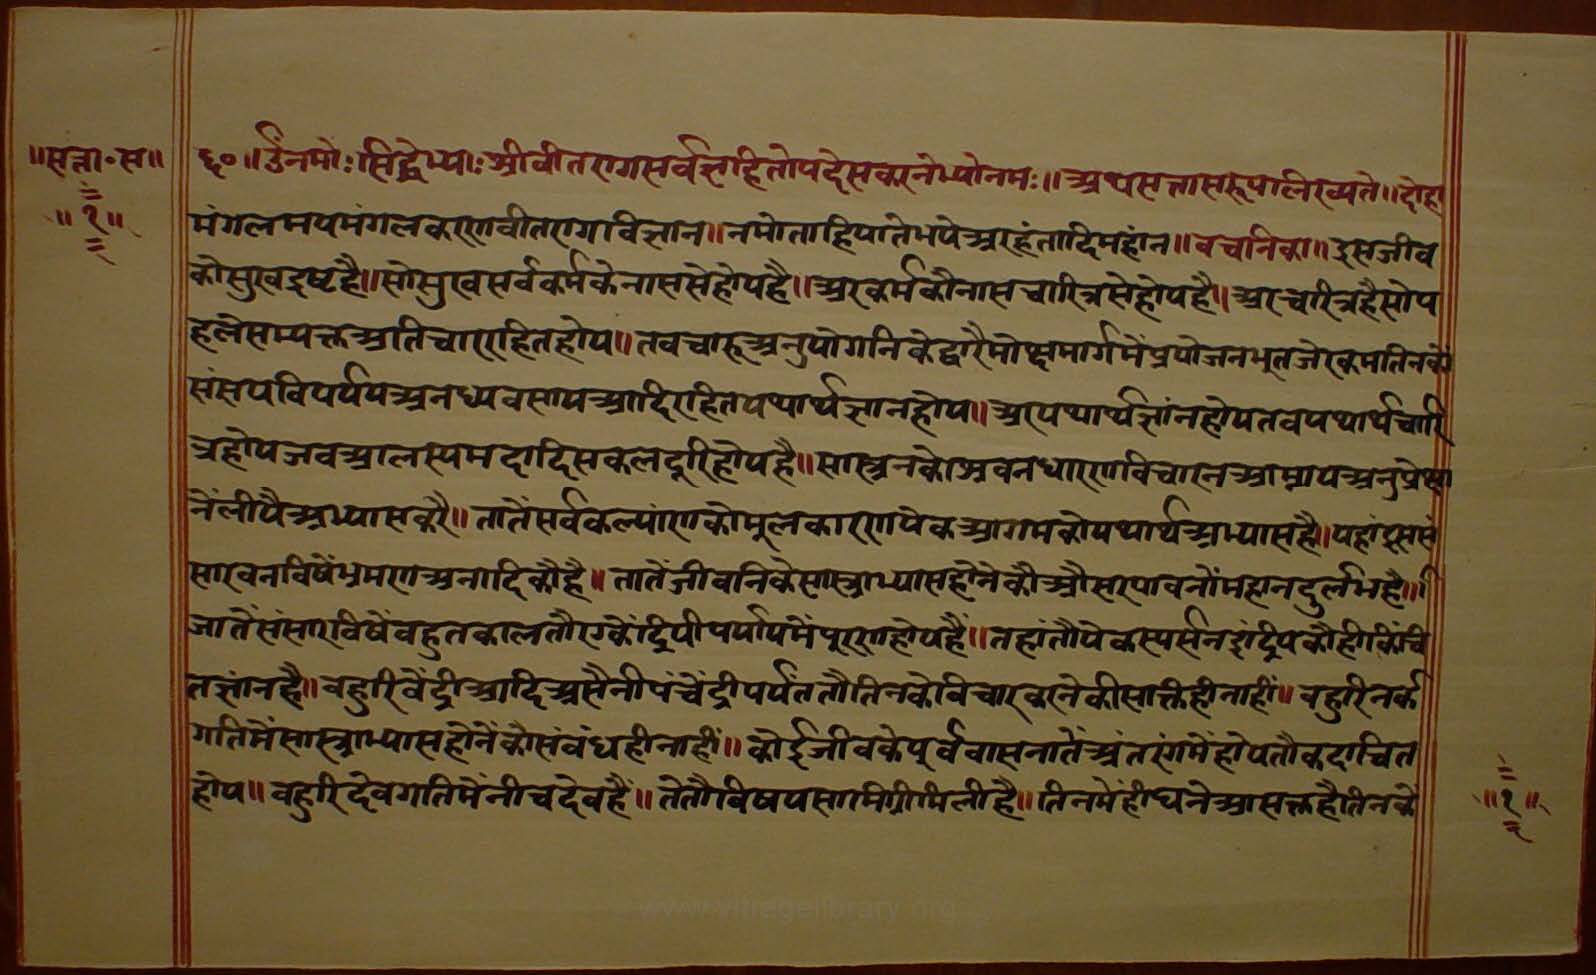 ॥सत्ता॰स॥
॥१॥
६०॥ॐनमोः॥सिद्धेभ्याःश्रीवीतरागसर्वज्ञहितोपदेसकरनेभ्योनमः॥अथसत्तासरूपलिख्यते॥दोहा
मंगलमयमंगलकरणवीतरागविज्ञान॥नमोताहिजातेभयेअरहंतादिमहांन॥वचनिका॥इसजीव
कोसुखइष्टहै॥सोसुखसर्वकर्मकेनाससेहोयहै॥अरकर्मकौनासचारित्रसेहोयहै॥अरचारित्रहैसोप
हलेसम्यक्तअतिचाररहितहोय॥तवचारूअनुयोगनिकेद्वारैमोक्षमार्गमेंप्रयोजनभूतजेरकमतिनकों
संसयविपर्ययअनध्यवसायआदिरहितयथार्थज्ञानहोय॥अरयथार्थज्ञांनहोयतवयथार्थचारि
त्रहोयजवआलस्यमदादिसकलदूरिहोयहै॥सास्त्रनकोश्रवनधारणविचारनआम्नायअनुप्रेक्षा
नेंलीयैअभ्यासकरै॥तातेंसर्वकल्यांणकोमूलकारणयेकआगमकोयथार्थअभ्यासहै॥यहांइससं
सारवनविषेंभ्रमणअनादिकौहै॥तातेंजीवनिकेसास्त्राभ्यासहोनेकौऔसरपावनोंमहानदुर्लभहै॥
जातेंसंसारविषेंवहुतकालतौएकेंद्रियीपर्यायमेंपूरणहोयहैं॥तहांतौयेकस्पर्सनइंद्रियकौहीकिंचि
तज्ञांनहै॥वहुरिवेंद्रीआदिअसैनीपंचेंद्रीपर्यंततौतिनकेविचारकरनेकीसक्तिहीनाहीं॥वहुरिनर्क
गतिमेंसास्त्राभ्यासहोनेंकौसंवंधहीनाहीं॥कोईजीवकेपूर्ववासनातेंअंतरंगमेंहोयतौकदाचित
होय॥वहुरिदेवगतिमेंनीचदेवहैं॥तेतौविषयसामिग्रीमिलीहै॥तिनमेंहीघनेआसक्तहैतिनके
॥१॥